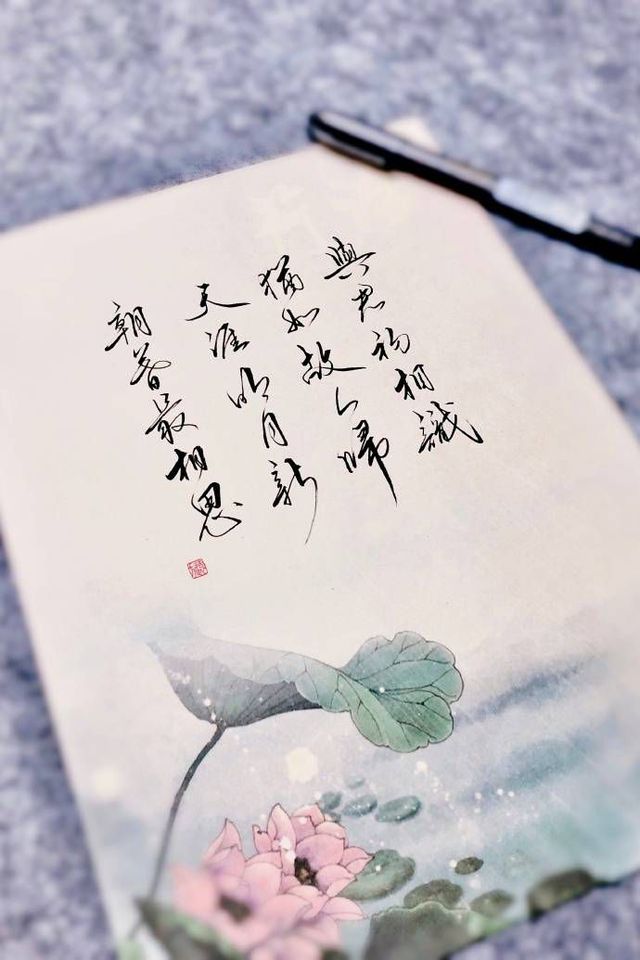 與君初相識
猶如故人歸
天涯明月新
朝暮最相思